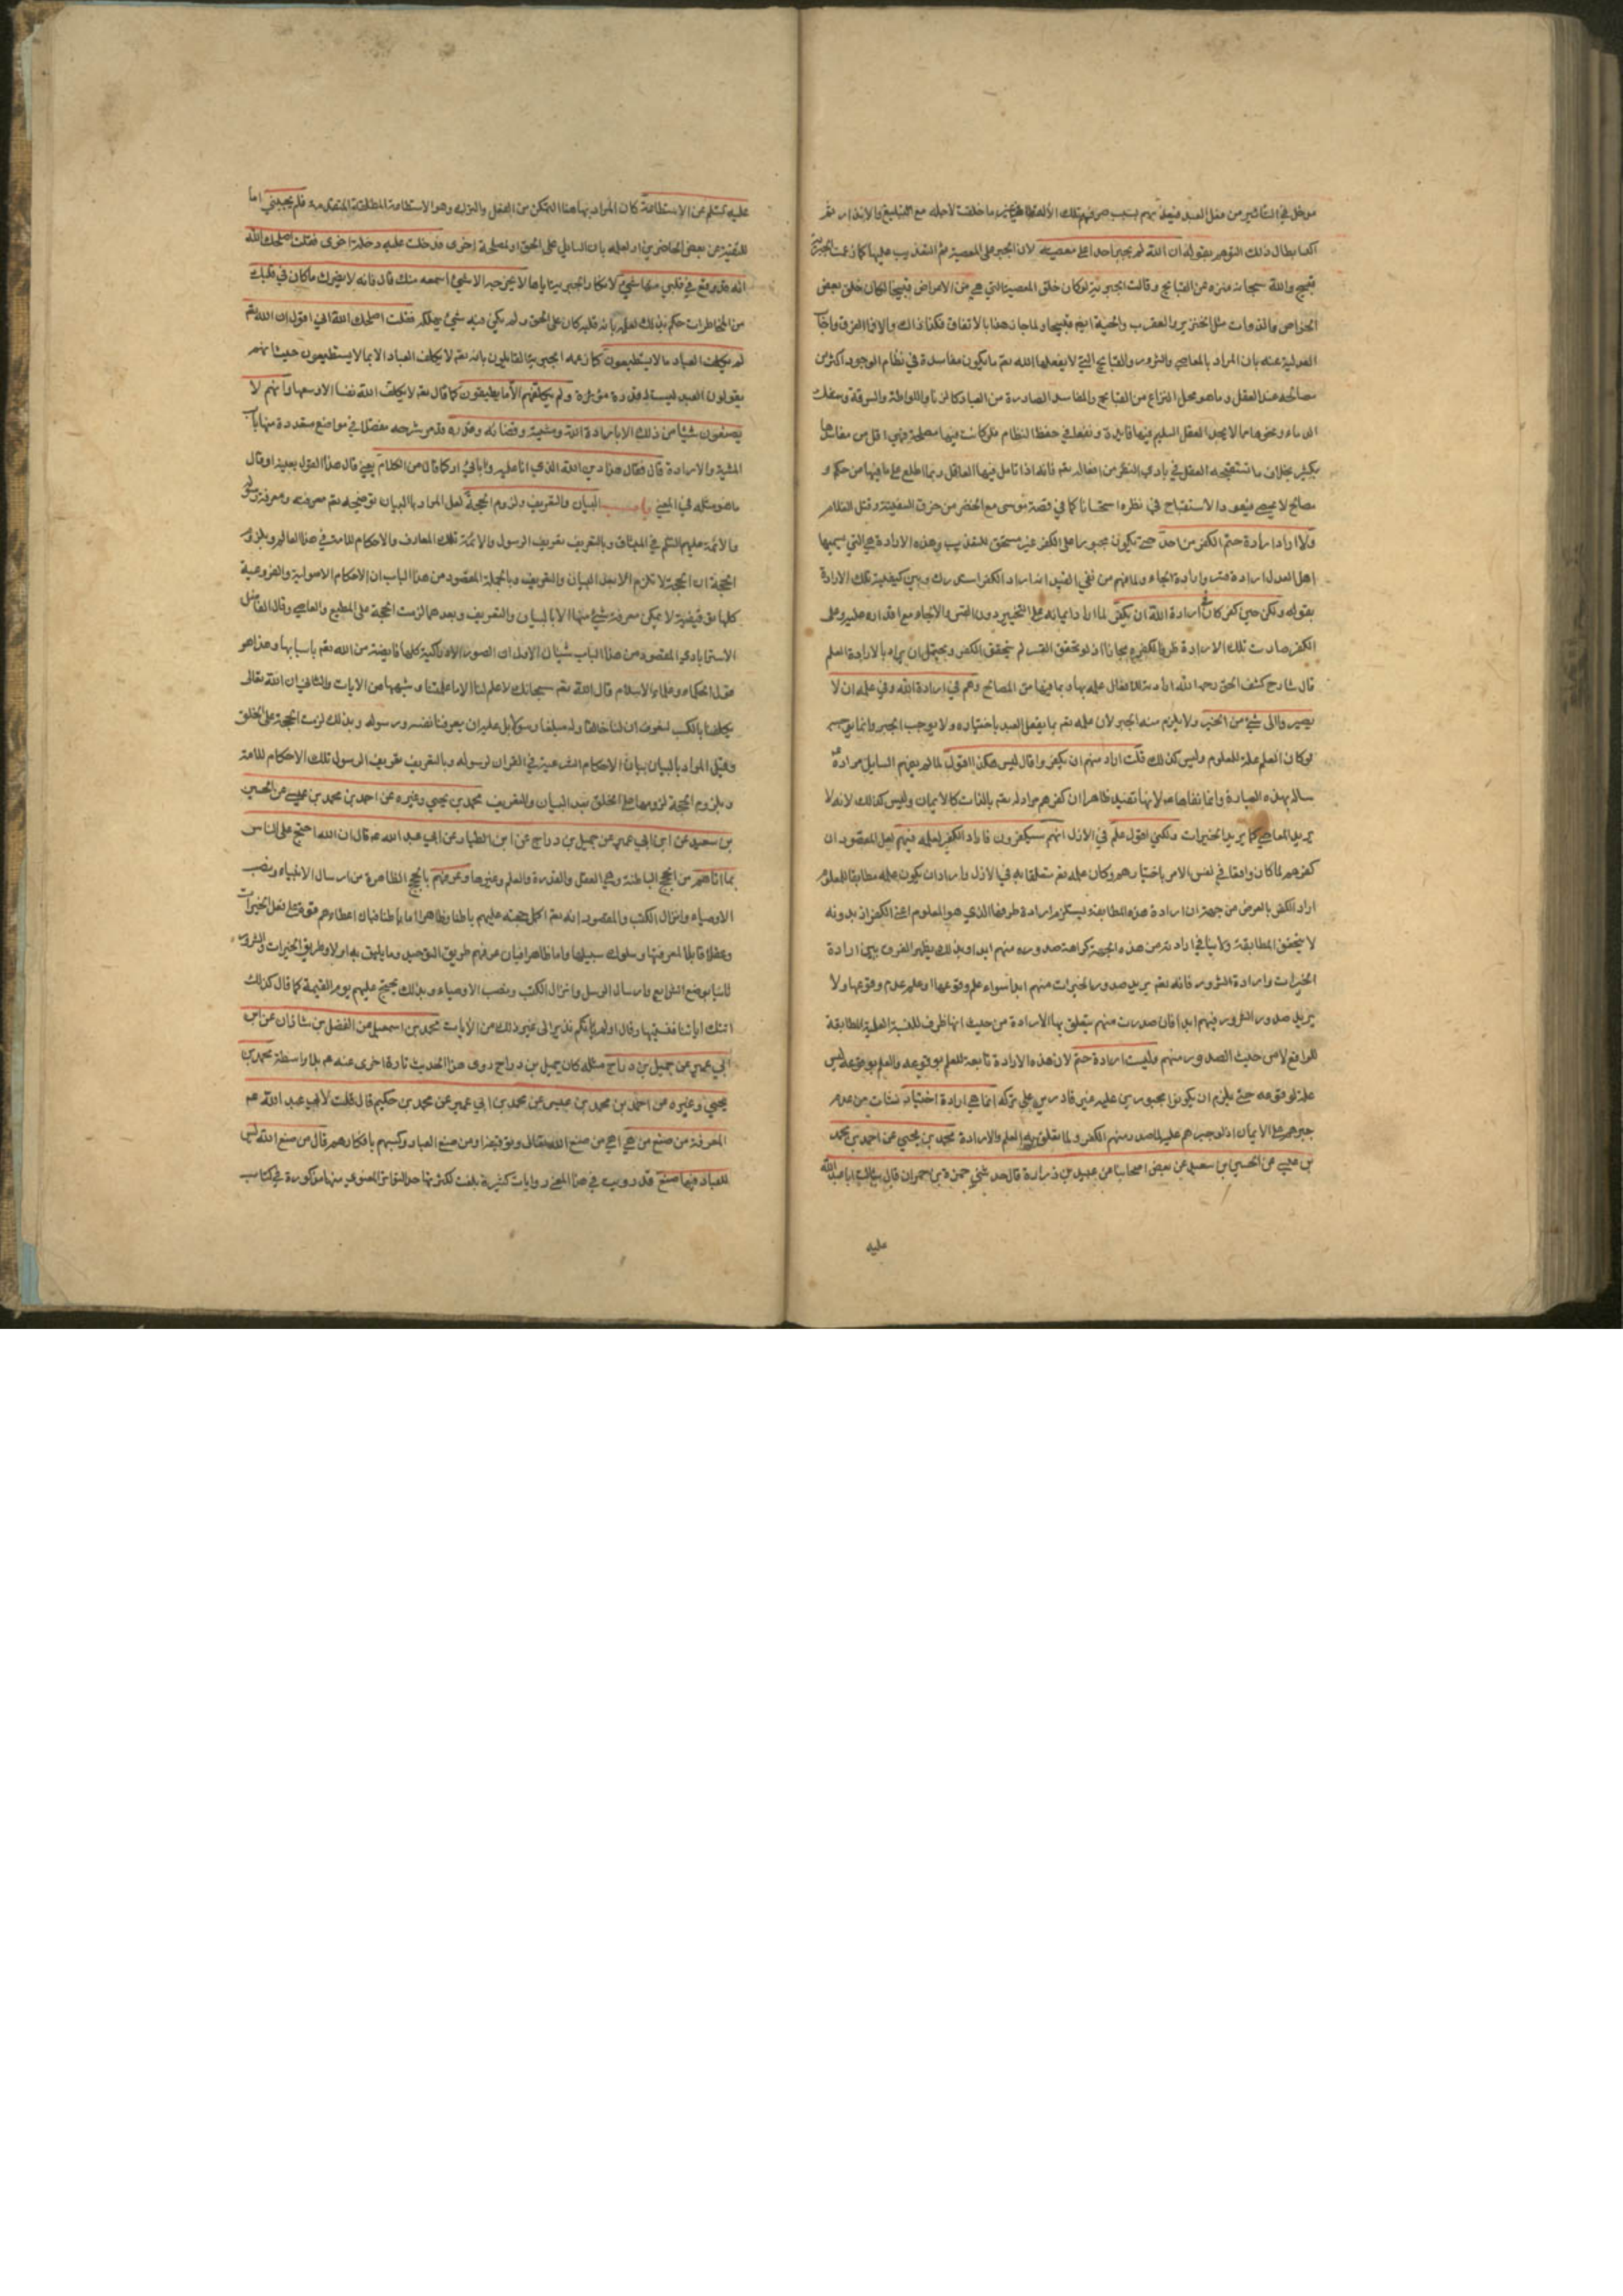 مدخل في التأثير من فعل العبد فيعذبهم بسبب صرفهم تلك الآلة فيما خلقت لأجله مع التبليغ والانذار ثم
أكد ابطال ذلك التوهم بقوله ان الله لم يجبر احدا على معصيته لان الجبر على المعصية ثم التعذيب عليها كما زعمت الجبرية
قبيح والله سبحانه منزه عن القبايح وقالت الجبرية لو كان خلق المعصية التي هي من الاعراض قبيحا لكان خلق بعض
الجواهر والذوات مثل الخنزير والعقرب والحية ايضا قبيحا ولما جاز هذا بالاتفاق فكذا ذاك والا فما الفرق واجاب
العدلية عنه بان المراد بالمعاصي والشرور والقبايح التي لا يفعلها الله تعم ما يكون مفاسده في نظام الوجود اكثر من
مصالحه عند العقل وما هو محل النزاع من القبايح والمفاسد الصادرة من العباد كالزنا واللواطة والسرقة وسفك
الدماء ونحوها مما لا يجد العقل السليم فيها فايدة ونفعا في حفظ النظام فلو كانت فيها مصلحة فهي اقل من مفاسدها
بكثير بخلاف ما تستقبحه العقل في بادي النظر من افعاله تعم فانه اذا تامل فيها العاقل ربما اطلع على ما فيها من حكم و
مصالح لا تحصى فيعود الاستقباح في نظره استحسانا كما في قصة موسى مع الخضر من خرق السفينة وقتل الغلام
ولا اراد ارادة حتم الكفر من احد حتى يكون مجبورا على الكفر غير مستحق للتعذيب وهذه الارادة هي التي يسميها
اهل العدل ارادة قسر وارادة الجاء ولما فهم من نفي القيد انه اراد الكفر استدرك وبين كيفية تلك الارادة
بقوله ولكن حين كفر كان في ارادة الله ان يكفر لما اراد ايمانه على التخيير دون القسر والالجاء مع اقداره عليه وعلى
الكفر صارت تلك الارادة ظرفا لكفره مجازا اذ لو تحقق القسر لم يتحقق الكفر ويحتمل ان يراد بالارادة العلم
قال شارح كشف الحق رحمه الله ارادته للافعال علمه بها وبما فيها من المصالح وهم في ارادة الله وفي علمه ان لا
يصيروا الى شيء من الخير ولا يلزم منه الجبر لان علمه تعم بما يفعل العبد باختياره ولا يوجب الجبر وانما يوجبه
لو كان العلم علة للمعلوم وليس كذلك قلت اراد منهم ان يكفروا قال ليس هكذا اقول لما لم يفهم السايل مراده
ساله بهذه العبارة وانما نفاها عم لانها تفيد ظاهرا ان كفرهم مراد له تعم بالذات كالايمان وليس كذلك لانه لا
يريد المعاصي كما يريد الخيرات ولكني اقول علم في الازل انهم سيكفرون فاراد الكفر لعلمه فيهم لعل المقصود ان
كفرهم لما كان واقعا في نفس الامر باختيارهم وكان علمه تعم متعلقا به في الازل واراد ان يكون علمه مطابقا للمعلوم
اراد الكفر بالعرض من جهة ان ارادة هذه المطابقة يستلزم ارادة طرفها الذي هو المعلوم اعني الكفر اذ بدونه
لا يتحقق المطابقة ولا ينافي ارادته من هذه الجهة كراهة صدوره منهم ابدا وبذلك يظهر الفرق بين ارادة
الخيرات وارادة الشرور فانه تعم يريد صدور الخيرات منهم ابدا سواء علم وقوعها او علم عدم وقوعها ولا
يريد صدور الشرور فيهم ابدا فان صدرت منهم يتعلق بها الارادة من حيث انها ظرف للنسبة العلمية المطابقة
للواقع لا من حيث الصدور منهم وليست ارادة حتم لان هذه الارادة تابعة للعلم بوقوعه والعلم بوقوعه ليس
علة لوقوعه حتى يلزم ان يكونوا مجبورين عليه غير قادرين على تركه انما هي ارادة اختيار نشات من عدم
جبرهم على الايمان اذ لو جبرهم عليه لما صدر منهم الكفر ولما تعلق به العلم والارادة محمد بن يحيى عن احمد بن محمد
بن عيسى عن الحسين بن سعيد عن بعض اصحابنا عن عبيد بن زرارة قال حدثني حمزة بن حمران قال سالت ابا عبد الله
عليه
عليه السلم عن الاستطاعة كان المراد بها هنا التمكن من الفعل والترك وهو الاستطاعة المطلقة المتقدمة فلم يجبني اما
للتقية عن بعض الحاضرين او لعلمه بان السايل على الحق او لمصلحة اخرى فدخلت عليه دخلة اخرى فقلت اصلحك الله
انه قد وقع في قلبي منها شيء لا يخرجه الا شيء اسمعه منك قال فانه لا يضرك ما كان في قلبك
من الخاطرات حكم بذلك لعلمه بانه قلبه كان على الحق ولم يكن فيه شيء يهلكه فقلت اصلحك الله اني اقول ان الله تعم
لم يكلف العباد ما لا يستطيعون كما زعمه الجبرية القايلون بانه تعم لا يكلف العباد الا بما لا يستطيعون حيث انهم
يقولون العبد ليست له قدرة مؤثرة ولم يكلفهم الا ما يطيقون كما قال تعم لا يكلف الله نفسا الا وسعها وانهم لا
يصنعون شيئا من ذلك الا بارادة الله ومشيته وقضائه وقدره قد مر شرحه مفصلا في مواضع متعددة منها باب
المشية والارادة قال فقال هذا دين الله الذي انا عليه وابائي او كما قال من الكلام يعني قال هذا القول بعينه او قال
ما هو مثله في المعنى باب البيان والتعريف ولزوم الحجة لعل المراد بالبيان توضيحه تعم معرفته ومعرفة رسوله
والائمة عليهم السلم في الميثاق وبالتعريف تعريف الرسول والائمة تلك المعارف والاحكام للامة في هذا العالم وبلزوم
الحجة ان الحجة لا تلزم الا بعد البيان والتعريف وبالجملة المقصود من هذا الباب ان الاحكام الاصولية والفروعية
كلها توقيفية لا يمكن معرفة شيء منها الا بالبيان والتعريف وبعدهما لزمت الحجة على المطيع والعاصي وقال الفاضل
الاسترابادي المقصود من هذا الباب شيئان الاول ان الصور الادراكية كلها فايضة من الله تعم باسبابها وهذا هو
قول الحكماء وعلماء الاسلام قال الله تعم سبحانك لا علم لنا الا ما علمتنا وشبهها من الايات والثاني ان الله تعالى
يكلفنا بالكسب لنعرف ان لنا خالقا وله مبلغا رسولا بل عليه ان يعرفنا نفسه ورسوله وبذلك لزمت الحجة على الخلق
وقيل المراد بالبيان بيان الاحكام الشرعية في القران لرسوله وبالتعريف تعريف الرسول تلك الاحكام للامة
وبلزوم الحجة لزومها على الخلق بعد البيان والتعريف محمد بن يحيى وغيره عن احمد بن محمد بن عيسى عن الحسين
بن سعيد عن ابن ابي عمير عن جميل بن دراج عن ابن الطيار عن ابي عبد الله عم قال ان الله احتج على الناس
بما اتاهم من الحجج الباطنة وهي العقل والقدرة والعلم وغيرها وعرفهم بالحجج الظاهرة من ارسال الانبياء ونصب
الاوصياء وانزال الكتب والمقصود انه تعم اكمل حجته عليهم باطنا وظاهرا اما باطنا فبان اعطاهم قوة على فعل الخيرات
وعقلا قابلا لمعرفتها وسلوك سبيلها واما ظاهرا فبان عرفهم طريق التوحيد وما يليق به اولا وطريق الخيرات والشرور
ثانيا بوضع الشرايع وارسال الرسل وانزال الكتب ونصب الاوصياء وبذلك يحتج عليهم يوم القيمة كما قال كذلك
اتتك اياتنا فنسيتها وقال اولم ياتكم نذير الى غير ذلك من الايات محمد بن اسمعيل عن الفضل بن شاذان عن ابن
ابي عمير عن جميل بن دراج مثله كان جميل بن دراج روى هذا الحديث تارة اخرى عنه عم بلا واسطة محمد بن
يحيى وغيره عن احمد بن محمد بن عيسى عن محمد بن ابي عمير عن محمد بن حكيم قال قلت لابي عبد الله عم
المعرفة من صنع من هي اهي من صنع الله تعالى وتوفيقه او من صنع العباد وكسبهم بافكارهم قال من صنع الله ليس
للعباد فيها صنع قد رويت في هذا المعنى روايات كثيرة بلغت لكثرتها حد التواتر المعنوي منها مذكورة في كتاب